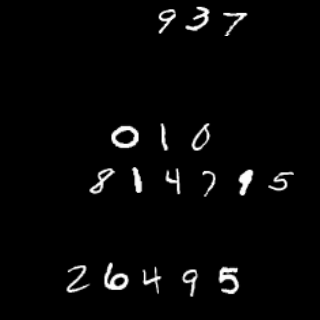 937
010
814795
26495